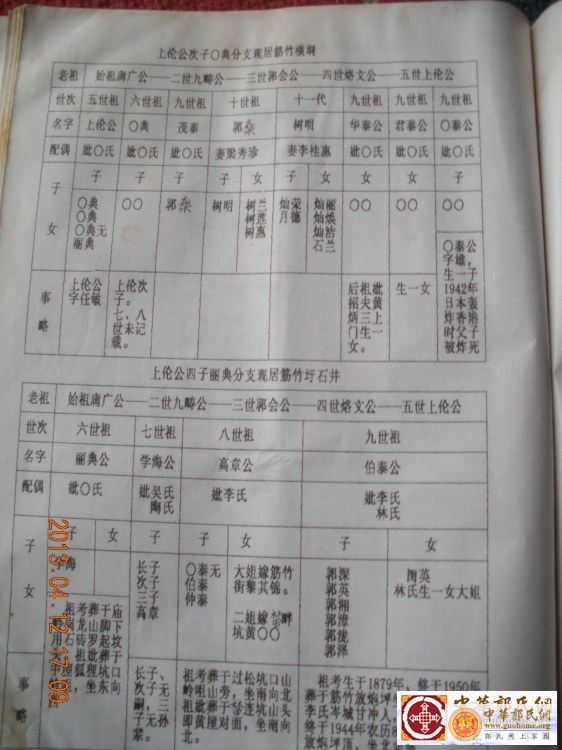 上伦公次子〇典分支现居筋竹横垌
老祖 始祖庸广公——二世九畴公——三世郭会公——四世烙文公——五世上伦公
世次 五世祖 六世祖 九世祖 十世祖 十一代 九世祖 九世祖 九世祖
名字 上伦公 〇典 茂泰 郭燊 树明 华泰公 君泰公 〇泰公
配偶 妣〇氏 妣〇氏 妣〇氏 妻梁秀珍 妻李桂惠 妣〇氏 妣〇氏 妣〇氏
子女 子 子 子 子 女 子 女 女 女 子
〇典 〇典 〇典无 丽典
〇〇
郭燊
树明
树兰 树莲 树惠
灿荣 月德
灿丽 灿焕 灿沽 石兰
〇〇
〇〇
〇〇
事略
上伦公字任敏
上伦次子。七、八世未记载。
后祖妣招夫黄炳三上门生一女。
生一女
〇泰公字雄，生一子1942年日本轰炸香港时父子被炸死
上伦公四子丽典分支现居筋竹圩石井
老祖 始祖庸广公——二世九畴公——三世郭会公——四世烙文公——五世上伦公
世次 六世祖 七世祖 八世祖 九世祖
名字 丽典公 学海公 高章公 伯泰公
配偶 妣〇氏 妣吴氏 陶氏 妣李氏 妣李氏 林氏
子女 子 女 子 子 女 子 女
学海
长子 次子 三子 高章
〇泰无 伯泰 仲泰
大姐嫁筋竹街黎其锦。
二姐嫁 畔坑黄〇〇
郭深 郭英 郭湘 郭漳 郭拢 郭泽
陶英
林氏生一女大姐
事略
祖考葬于庙 龙山脚下 石砖罗起坟 。祖妣葬于 狐狸坑口 ，坐东向
长子、次子无嗣，三子无孙辈。
祖考葬于过松坑口山岭咀山旁，坐南向北 祖妣葬于 连坑山头即黄屋对面，坐南向
祖考生于1879年，终于1950年 葬于筋竹放炮坪 李氏岑城甘冲人 终于1944年农历
2013.04.12 17:09
中华郭氏网
中华郭氏网
www.guohome.org
郭氏网上家园